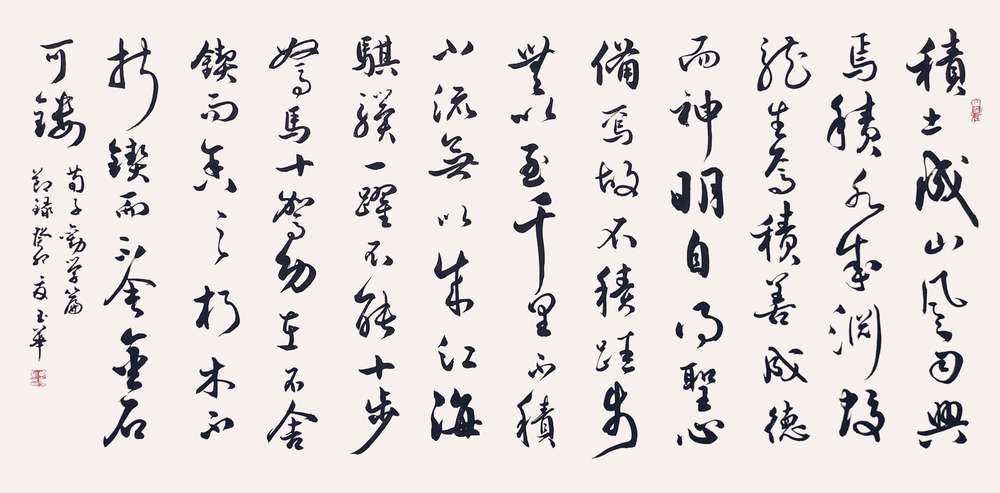 積土成山風雨興
焉積水成淵蛟
龍生焉積善成德
而神明自得聖心
備焉故不積跬步
無以至千里不積
小流無以成江海
騏驥一躍不能十步
駑馬十駕功在不舍
鍥而舍之朽木不
折鍥而不舍金石
可鏤
荀子勸学篇
節録癸卯夏玉華